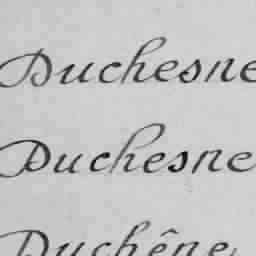 Duchesne
Duchesne
Duchêne